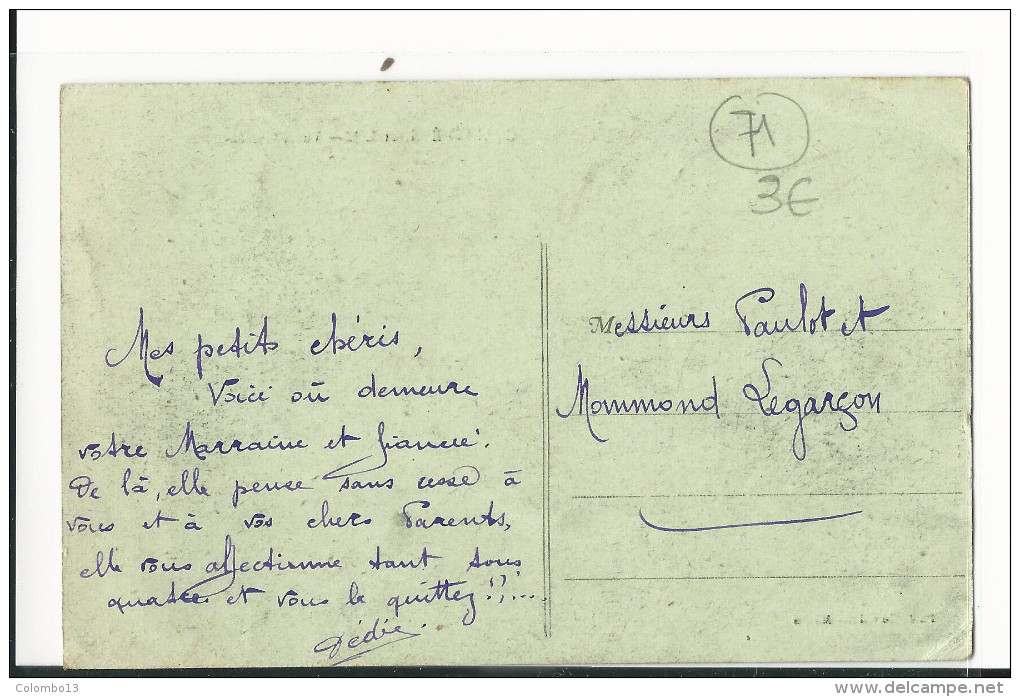 71
3€
Mes petits chéris,
Voici où demeure
votre Marraine et fiancée.
De là, elle pense sans cesse à
vous et à vos chers Parents,
elle vous affectionne tant tous
quatre et vous la quittez !;....
Dédée.
Messieurs Paulot et
Mommond Legarçon
Colombo13
www.delcampe.net